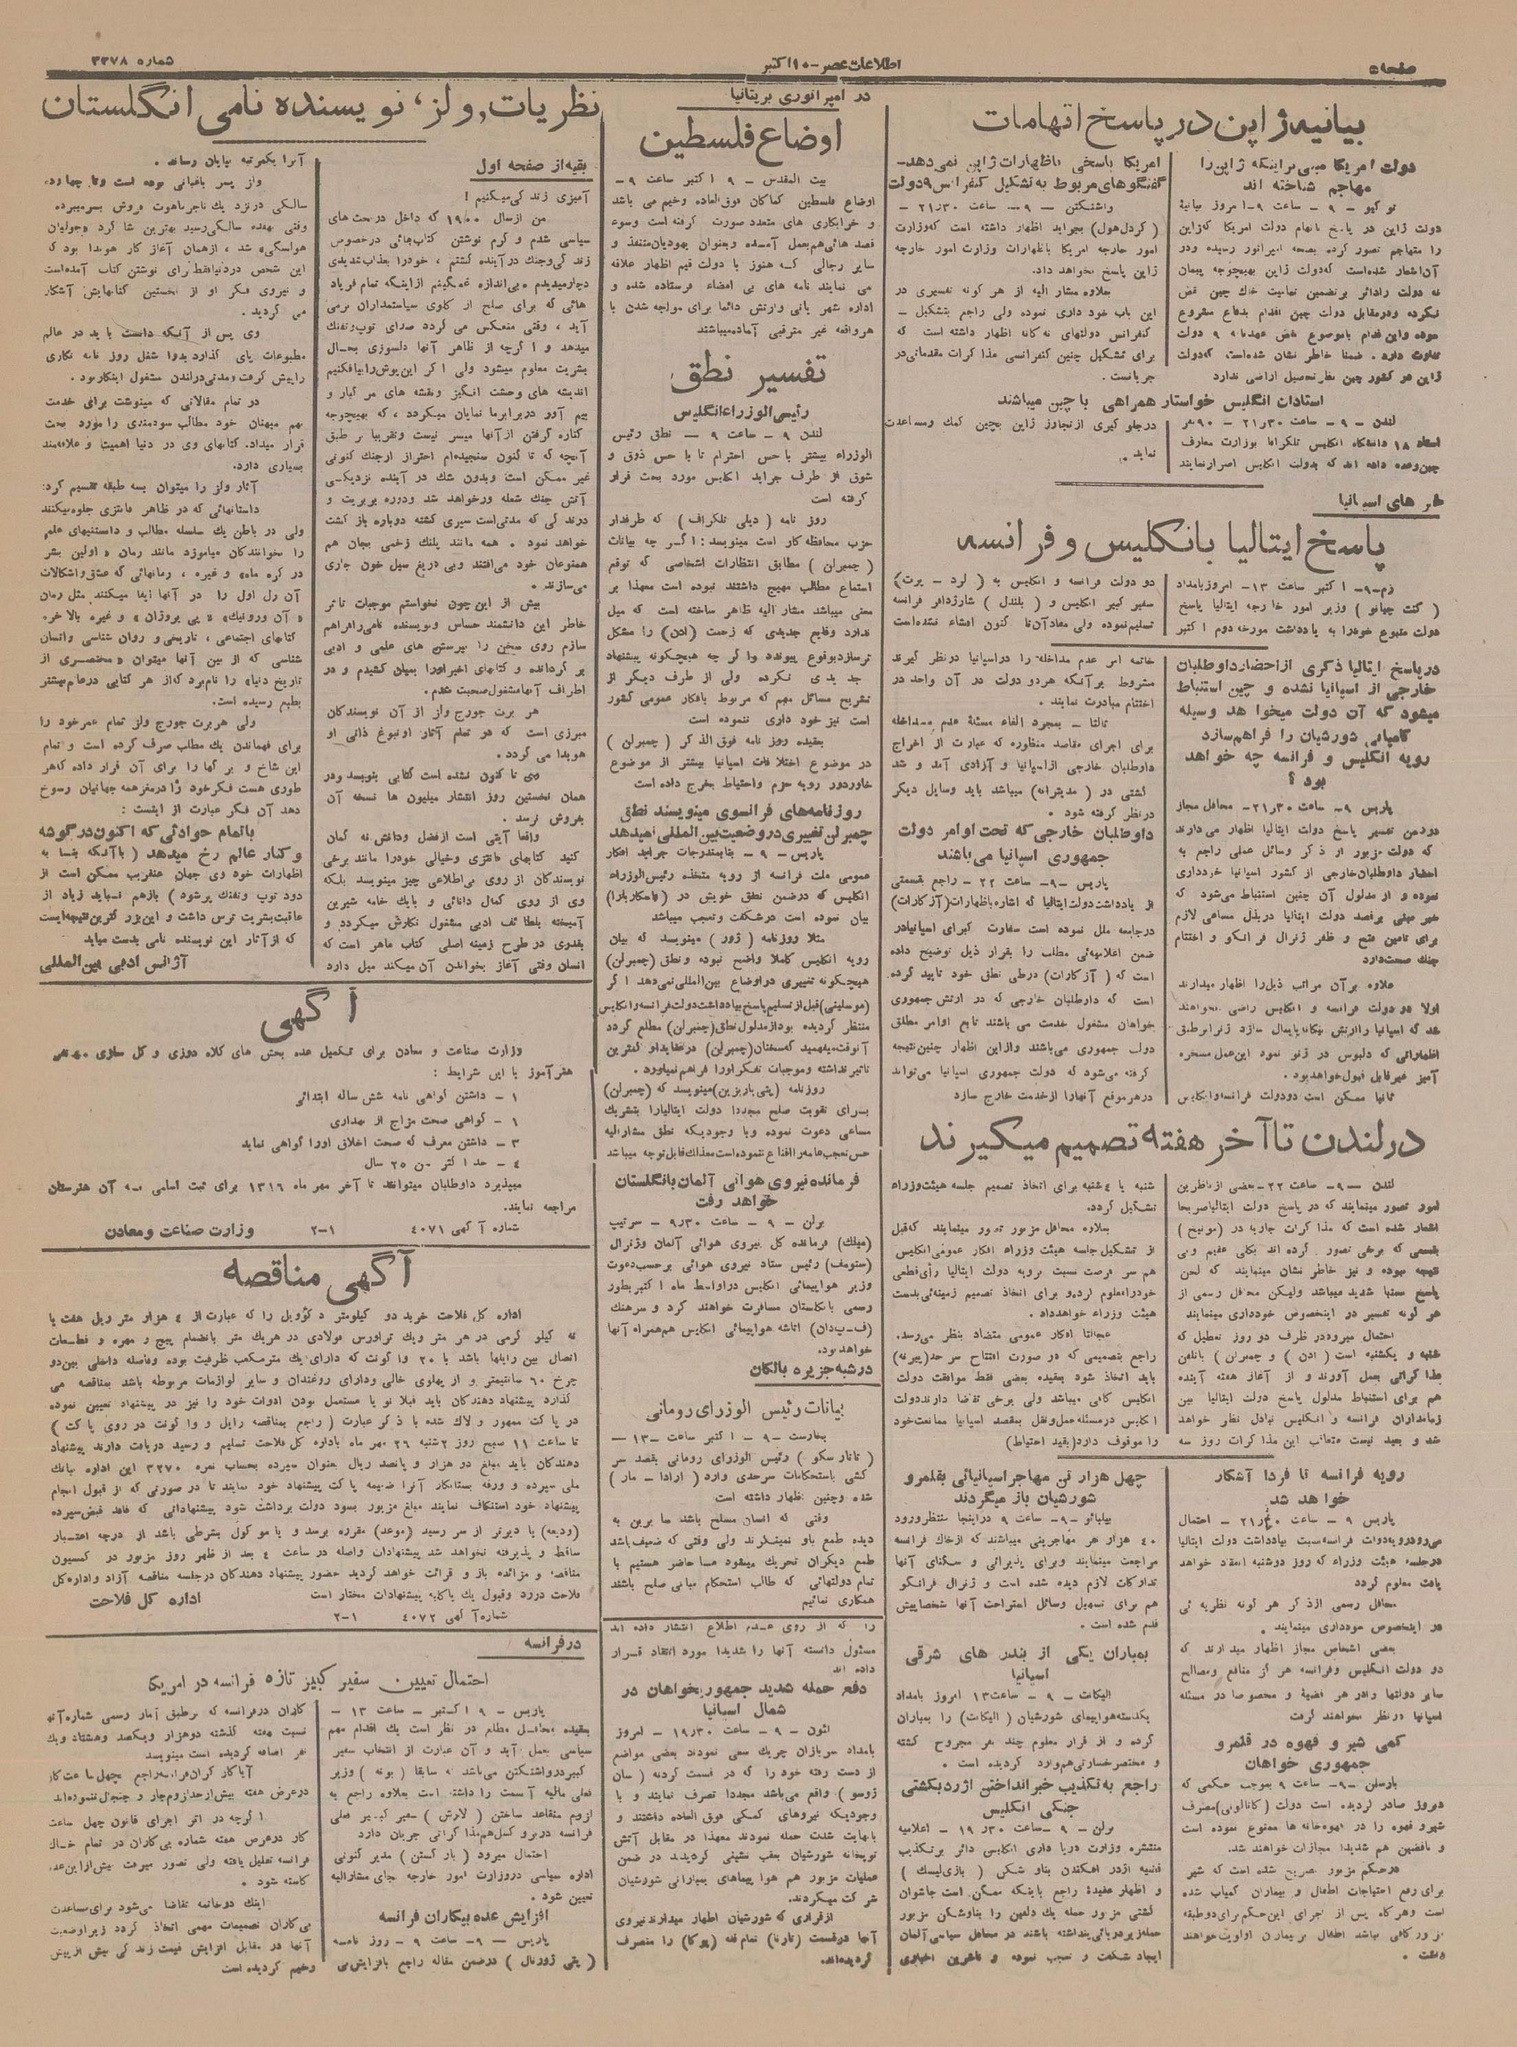 صفحه ۵
اطلاعات عصر - ۱۰ اکتبر
شماره ۳۳۷۸
بیانیه ژاپن در پاسخ اتهامات
دولت امریکا مبنی براینکه ژاپن را
مهاجم شناخته اند
توکیو - ۹ - ساعت ۹- امروز بیانیهٔ
دولت ژاپن در پاسخ اتهام دولت امریکا که ژاپن
را متهاجم تصور کرده بصحه امپراتور رسیده ودر
آن اشعار شده است که دولت ژاپن بهیچوجه پیمان
نه دولت را دائر برتضمین تمامیت خاك چین نقض
نکرده ودرمقابل دولت چین اقدام بدفاع مشروع
نموده واین اقدام باموضوع نقض عهدنامه ۹ دولت
تفاوت دارد . ضمنا خاطر نشان شده است که دولت
ژاپن در کشور چین نظر تحصیل اراضی ندارد
امریکا پاسخی باظهارات ژاپن نمی دهد-
گفتگوهای مربوط به تشکیل کنفرانس ۹ دولت
واشنگتن - ۹ - ساعت ۲۱٫۳۰ -
( کردل هول) بجراید اظهار داشته است که وزارت
امور خارجه امریکا باظهارات وزارت امور خارجه
ژاپن پاسخ نخواهد داد.
بعلاوه مشار الیه از هر گونه تفسیری در
این باب خود داری نموده ولی راجع بتشکیل -
کنفرانس دولتهای نه گانه اظهار داشته است که
برای تشکیل چنین کنفرانسی مذاکرات مقدماتی در
جریانست .
استادان انگلیس خواستار همراهی با چین میباشند
لندن - ۹ - ساعت ۲۱٫۳۰ - ۹۰ نفر
استاد ۱۸ دانشگاه انگلیس تلگرافا بوزارت معارف
چین وعده داده اند که بدولت انگلیس اصرار نمایند
در جلو گیری از تجاوز ژاپن بچین کمك ومساعدت
نماید .
خبر های اسپانیا
پاسخ ایتالیا بانگلیس و فرانسه
رم-۹- اکتبر ساعت ۱۳- امروز بامداد
( کنت چیانو ) وزیر امور خارجه ایتالیا پاسخ
دولت متبوع خودرا به یادداشت مورخه دوم اکتبر
دو دولت فرانسه و انگلیس به ( لرد - پرت)
سفیر کبیر انگلیس و ( بلندل ) شارژدافر فرانسه
تسلیم نموده ولی مفاد آن تا کنون افشاء نشده است
در پاسخ ایتالیا ذکری از احضار داوطلبان
خارجی از اسپانیا نشده و چنین استنباط
میشود که آن دولت میخواهد وسیله
کامیابی شورشیان را فراهم سازد
رویه انگلیس و فرانسه چه خواهد
بود ؟
پاریس ۹- ساعت ۲۱٫۳۰- محافل مجاز
در ضمن تفسیر پاسخ دولت ایتالیا اظهار می دارند
که دولت مزبور از ذکر وسائل عملی راجع به
احضار داوطلبان خارجی از کشور اسپانیا خودداری
نموده و از مدلول آن چنین استنباط می‌شود که
خبر مبنی برقصد دولت ایتالیا دربذل مساعی لازم
برای تامین فتح و ظفر ژنرال فرانکو و اختتام
جنك صحت دارد
علاوه برآن مراتب ذیل را اظهار میدارند
اولا دو دولت فرانسه و انگلیس راضی نخواهند
شد که اسپانیا را ارتش بیگانه پایمال سازد زیرا برطبق
اظهاراتی که دلبوس در ژنو نمود این عمل مسخره
آمیز غیرقابل قبول خواهد بود .
ثانیا ممکن است دو دولت فرانسه و انگلیس
خاتمه امر عدم مداخله را در اسپانیا در نظر گیرند
مشروط برآنکه هر دو دولت در آن واحد در
اختتام مبادرت نمایند .
ثالثا - بمجرد الغاء مسئلهٔ عدم مداخله
برای اجرای مقاصد منظوره که عبارت از اخراج
داوطلبان خارجی از اسپانیا و آزادی آمد و شد
کشتی در ( مدیترانه) میباشد باید وسایل دیگر
در نظر گرفته شود .
داوطلبان خارجی که تحت اوامر دولت
جمهوری اسپانیا می‌باشند
پاریس -۹- ساعت ۲۲ - راجع بقسمتی
از یادداشت دولت ایتالیا که اشاره باظهارات (آزکارات)
در جامعه ملل نموده است سفارت کبرای اسپانیا در
ضمن اعلامیه‌ئی مطلب را بقرار ذیل توضیح داده
است که ( آزکارات) درطی نطق خود تایید کرده
است که داوطلبان خارجی که در ارتش جمهوری
خواهان مشغول خدمت می باشند تابع اوامر مطلق
دولت جمهوری می‌باشند واز این اظهار چنین نتیجه
گرفته می‌شود که دولت جمهوری اسپانیا می‌تواند
در هر موقع آنهارا از خدمت خارج سازد
در لندن تا آخر هفته تصمیم میگیرند
لندن -۹- ساعت ۲۲- بعضی از ناظرین
امور تصور مینمایند که در پاسخ دولت ایتالیا صریحا
اشعار شده است که مذاکرات جاریه در (مونیخ )
بقسمی که برخی تصور کرده اند بکلی عقیم وبی
نتیجه نبوده و نیز خاطر نشان مینمایند که لحن
پاسخ نسبتا شدید میباشد ولیکن محافل رسمی از
هر گونه تفسیر در اینخصوص خودداری مینمایند
احتمال میرود در ظرف دو روز تعطیل که
شنبه و یکشنبه است ( ادن ) و چمبرلن ) باتلفن
مذاکراتی بعمل آورند و از آغاز هفته آینده
هم برای استنباط مدلول پاسخ دولت ایتالیا بین
زمامداران فرانسه و انگلیس تبادل نظر خواهد
شد و بعید نیست متعاقب این مذاکرات روز سه
شنبه یا ٤شنبه برای اتخاذ تصمیم جلسه هیئت وزراء
تشکیل گردد.
بعلاوه محافل مزبور تصور مینمایند که قبل
از تشکیل جلسه هیئت وزراء افکار عمومی انگلیس
هم سر فرصت نسبت برویه دولت ایتالیا رأی قطعی
خودرا معلوم کرده و برای اتخاذ تصمیم زمینه‌ئی بدست
هیئت وزراء خواهد داد .
عجالتا افکار عمومی متضاد بنظر می‌رسد.
راجع بتصمیمی که در صورت افتتاح سرحد (پیرنه)
باید اتخاذ شود بعقیده بعضی فقط موافقت دولت
انگلیس کافی میباشد ولی برخی تقاضا دارند دولت
انگلیس در مسئله حمل ونقل بمقصد اسپانیا ممانعت خود
را موقوف دارد (بقید احتیاط)
رویه فرانسه تا فردا آشکار
خواهد شد
پاریس ۹ - ساعت ۲۱٫۴۰ - احتمال
می‌رود رویه دولت فرانسه نسبت بیادداشت دولت ایتالیا
در جلسه هیئت وزراء که روز دوشنبه انعقاد خواهد
یافت معلوم گردد
محافل رسمی از ذکر هر گونه نظریه ئی
در اینخصوص خودداری مینمایند .
بعضی اشخاص مجاز اظهار میدارند که
دو دولت انگلیس وفرانسه هر گز منافع ومصالح
سایر دولتها را در هر قضیهٔ و مخصوصا در مسئله
اسپانیا در نظر نخواهند گرفت
کمی شیر و قهوه در قلمرو
جمهوری خواهان
بارسلن -۹- ساعت ۹ بموجب حکمی که
دیروز صادر گردیده است دولت (کاتالونی) مصرف
شیر و قهوه را در قهوه‌خانه ها ممنوع نموده است
و ناقضین هم شدیدا مجازات خواهند شد.
در حکم مزبور تصریح شده است که شیر
برای رفع احتیاجات اطفال و بیماران کمیاب شده
است وهرگاه پس از اجرای این حکم برای دو طبقه
مزبور کافی نباشد اطفال بر بیماران اولویت خواهند
داشت .
چهل هزار تن مهاجر اسپانیائی بقلمرو
شورشیان باز میگردند
بیلبائو -۹- ساعت ۹ در اینجا منتظر ورود
۴۰ هزار هر مهاجرینی میباشند که از خاك فرانسه
مراجعت مینمایند وبرای پذیرائی و سکنای آنها
تدارکات لازم دیده شده است و ژنرال فرانکو
هم برای تسهیل وسائل استراحت آنها شخصا پیش
قدم شده است .
بمباران یکی از بندر های شرقی
اسپانیا
الیکانت - ۹ - ساعت ۱۳ امروز بامداد
یکدسته هواپیمای شورشیان ( الیکانت) را بمباران
کرده و از قرار معلوم چند نفر مجروح گشته
و مختصر خسارتی هم وارد گردیده است .
راجع به تکذیب خبر انداختن اژدر بکشتی
جنگی انگلیس
برلن - ۹ -ساعت ۱۹٫۳۰ - اعلامیه
منتشره وزارت دریا داری انگلیس دائر برتکذیب
قضیه اژدر افکندن بناو شکن ( بازیلیسك )
و اظهار عقیدهٔ راجع باینکه ممکن است جاشوان
کشتی مزبور حمله یك دلفین را بناوشکن مزبور
حمله زیردریائی پنداشته باشند در محافل سیاسی آلمان
ایجاد شگفت و تعجب نموده و ناشرین اخباری
را که از روی عدم اطلاع انتشار داده اند
مسئول دانسته آنها را شدیدا مورد انتقاد قرار
داده اند
دفع حمله شدید جمهوریخواهان در
شمال اسپانیا
لئون - ۹ - ساعت ۱۹٫۳۰ - امروز
بامداد سربازان چریك سعی نمودند بعضی مواضع
از دست رفته خود را که در قسمت کردنه ( سان
ژوسو ) واقع می‌باشد مجددا تصرف نمایند و با
وجودیکه نیروهای کمکی فوق العاده داشتند و
بانهایت شدت حمله نمودند معهذا در مقابل آتش
توپخانه شورشیان بعقب نشینی گردیدند در ضمن
عملیات مزبور هم هوا پیماهای بمبارانی شورشیان
شرکت میکردند.
از قراری که شورشیان اظهار میدارند نیروی
آنها در قسمت (تارنا) تمام قله (پوکا) را متصرف
گردیده‌اند.
در امپراتوری بریتانیا
اوضاع فلسطین
بیت المقدس - ۹ اکتبر ساعت ۹ -
اوضاع فلسطین کماکان فوق العاده وخیم می باشد
و خرابکاری های متعدد صورت گرفته است وسوء
قصد هائی هم بعمل آمده وبعنوان یهودیان متنفذ و
سایر رجالی که هنوز با دولت قیم اظهار علاقه
می نمایند نامه های بی امضاء فرستاده شده و
اداره شهربانی وارتش دائما برای مواجه شدن با
هر واقعه غیر مترقبی آماده میباشند
تفسیر نطق
رئیس الوزراء انگلیس
لندن ۹ - ساعت ۹ - نطق رئیس
الوزراء بیشتر با حس احترام تا با حس ذوق و
شوق از طرف جراید انگلیس مورد بحث قرار
گرفته است
روز نامه ( دیلی تلگراف ) که طرفدار
حزب محافظه کار است مینویسد : اگر چه بیانات
( چمبرلن ) مطابق انتظارات اشخاصی که توقع
استماع مطالب مهیج داشتند نبوده است معهذا بر
معنی میباشد مشار الیه ظاهر ساخته است که میل
ندارد وقایع جدیدی که زحمت (ادن) را مشکل
ترسازد بوقوع پیوندد واگر چه هیچگونه پیشنهاد
جدیدی نکرده ولی از طرف دیگر از
تشریح مسائل مهم که مربوط بافکار عمومی کشور
است نیز خود داری ننموده است
بعقیده روز نامه فوق الذکر ( چمبرلن )
در موضوع اختلافات اسپانیا بیشتر از موضوع
خاوردور رویه حزم واحتیاط بخرج داده است
روزنامه‌های فرانسوی مینویسند نطق
چمبرلن تغییری در وضعیت بین المللی نمیدهد
پاریس - ۹ - بنابمندرجات جراید افکار
عمومی ملت فرانسه از رویه متخذه رئیس الوزراء
انگلیس که در ضمن نطق خویش در (اسکاربارا)
بیان نموده است در شگفت وتعجب میباشد
مثلا روزنامه ( ژور ) مینویسد که بیان
رویه انگلیس کاملا واضح نبوده ونطق (چمبرلن)
هیچگونه تغییری در اوضاع بین المللی نمی‌دهد اگر
(موسلینی) قبل از تسلیم پاسخ بیادداشت دولت فرانسه وانگلیس
منتظر گردیده بود از مدلول نطق (چمبرلن) مطلع گردد
آنوقت میفهمید که سخنان (چمبرلن) در عقاید او کمترین
تاثیر نداشته وموجبات تفکر اورا فراهم نمیاورد .
روزنامه (پتی پاریزین) مینویسد که (چمبرلن)
برای تقویت صلح مجددا دولت ایتالیارا بتشریك
مساعی دعوت نموده وبا وجودیکه نطق مشارالیه
حس تعجب عامه را اقناع ننموده است معذلك قابل توجه میباشد
فرمانده نیروی هوائی آلمان بانگلستان
خواهد رفت
برلن - ۹ - ساعت ۹٫۳۰ - سرتیپ
(میلك) فرمانده کل نیروی هوائی آلمان وژنرال
(ستومف) رئیس ستاد نیروی هوائی برحسب دعوت
وزیر هواپیمائی انگلیس در اواسط ماه اکتبر بطور
رسمی بانگلستان مسافرت خواهند کرد و سرهنك
(ف-پ‌دان) اتاشه هواپیمائی انگلیس هم همراه آنها
خواهد بود.
در شبه جزیره بالکان
بیانات رئیس الوزرای رومانی
بخارست - ۹ - اکتبر ساعت -۱۳-
( تاتارسکو ) رئیس الوزرای رومانی بقصد سر
کشی باستحکامات سرحدی وارد ( ارادا - مار )
شده وچنین اظهار داشته است
وقتی که انسان مسلح باشد سایرین به
دیده طمع باو نمینگرند ولی وقتی که ضعیف باشد
طمع دیگران تحریك میشود ما حاضر هستیم با
تمام دولتهائی که طالب استحکام مبانی صلح باشند
همکاری نمائیم
نظریات ,ولز، نویسنده نامی انگلستان
بقیه از صفحه اول
آمیزی زندگی میکنیم !
من از سال ۱۹۰۰ که داخل در بحث های
سیاسی شدم و گرم نوشتن کتاب‌هائی درخصوص
زندگی وجنك در آینده گشتم ، خودرا بعذاب شدیدی
دچار میدیدم . بی اندازه غمگینم از اینکه تمام فریاد
هائی که برای صلح از گلوی سیاستمداران برمی
آید ، وقتی منعکس می گردد صدای توپ وتفنك
میدهد و اگرچه از ظاهر آنها دلسوزی بحال
بشریت معلوم میشود ولی اگر این پوش را بیافکنیم
اندیشه های وحشت انگیز ونقشه های مرگبار و
بیم آور در برابر ما نمایان میگردد ، که بهیچوجه
کناره گرفتن از آنها میسر نیست وتقریبا بر طبق
آنچه که تا کنون سنجیده‌ام احتراز از جنك کنونی
غیر ممکن است وبدون شك در آینده نزدیکی
آتش جنك شعله ورخواهد شد ودوره بربریت و
درندگی که مدتی است سپری گشته دوباره باز گشت
خواهد نمود . همه مانند پلنك زخمی بجان هم
همنوعان خود می‌افتند وبی دریغ سیل خون جاری
می‌سازند .
بیش از این چون نخواستم موجبات تاثر
خاطر این دانشمند حساس ونویسنده نامی را فراهم
سازم روی سخن را بپرسش های علمی و ادبی
برگردانده و کتابهای اخیر اورا بمیان کشیدم و در
اطراف آنها مشغول صحبت شدم .
هر برت جورج ولز از آن نویسندگان
مبرزی است که در تمام آثار او نبوغ ذاتی او
هویدا می گردد .
وی تا کنون نشده است کتابی بنویسد ودر
همان نخستین روز انتشار میلیون ها نسخه آن
بفروش نرسد .
واقعا آیتی است از فضل ودانش نه گمان
کنید کتابهای فانتزی وخیالی خودرا مانند برخی
نویسندگان از روی بی‌اطلاعی چیز مینویسد بلکه
وی از روی کمال دانائی و بایك خامه شیرین
آمیخته بلطائف ادبی مشغول نگارش میگردد و
بقدری در طرح زمینه اصلی کتاب ماهر است که
انسان وقتی آغاز بخواندن آن میکند میل دارد
آنرا یکمرتبه بپایان رساند .
ولز پسر باغبانی بوده است وتا چهارده
سالگی در نزد یك تاجر ماهوت فروش بسر میبرده
وقتی بهفده سالگی رسید بهترین شاگرد «جولیان
هواسکی» شد ، از همان آغاز کار هویدا بود که
این شخص در دنیا فقط برای نوشتن کتاب آمده است
و نیروی فکر او از نخستین کتابهایش آشکار
می گردید .
وی پس از آنکه دانست باید در عالم
مطبوعات پای گذارد بدوا شغل روز نامه نگاری
را پیش گرفت ومدتی در لندن مشغول اینکار بود .
در تمام مقالاتی که مینوشت برای خدمت
بهم میهنان خود مطالب سودمندی را مورد بحث
قرار میداد. کتابهای وی در دنیا اهمیت و علاقمند
بسیاری دارد.
آثار ولز را میتوان بسه طبقه تقسیم کرد:
داستانهائی که در ظاهر فانتزی جلوه میکنند
ولی در باطن یك سلسله مطالب و دانستنیهای علمی
را بخوانندگان میآموزد مانند رمان «اولین بشر
در کره ماه» و غیره ، رمانهائی که عشق واشکالات
آن رل اول را در آنها ایفا میکنند مثل رمان
« آن ورونیك» « بی بروژان» و غیره بالاخره
کتابهای اجتماعی ، تاریخی و روان شناسی وانسان
شناسی که از بین آنها میتوان «مختصری از
تاریخ دنیا» را نام برد که از هر کتابی در عالم بیشتر
بطبع رسیده است.
ولی هربرت جورج ولز تمام عمر خود را
برای فهماندن یك مطلب صرف کرده است و تمام
این شاخ و برگها را برای آن قرار داده که هر
طوری هست فکر خود را در مغز همه جهانیان رسوخ
دهد آن فکر عبارت از اینست :
باتمام حوادثی که اکنون در گوشه
و کنار عالم رخ میدهد ( با آنکه بنا به
اظهارات خود وی جهان عنقریب ممکن است از
دود توپ وتفنك پر شود ) بازهم نباید زیاد از
عاقبت بشریت ترس داشت و این بزرگترین نتیجه ایست
که از آثار این نویسنده نامی بدست میاید
آژانس ادبی بین المللی
آگهی
وزارت صناعت و معادن برای تکمیل عده بخش های کلاه دوزی و گل سازی
هنرآموز با این شرایط :
۱ - داشتن گواهی نامه شش ساله ابتدائی
۲ - گواهی صحت مزاج از بهداری
۳ - داشتن معرف که صحت اخلاق اورا گواهی نماید
٤ - حداکثر سن ۲۵ سال
میپذیرد داوطلبان میتوانند تا آخر مهر ماه ۱۳۱۶ برای ثبت اسامی به آن هنرستان
مراجعه نمایند.
شماره آگهی ٤۰۷۱ ۲-۱ وزارت صناعت و معادن
آگهی مناقصه
اداره کل فلاحت خرید دو کیلومتر دکوویل را که عبارت از ٤ هزار متر ریل هفت یا
نه کیلو گرمی در هر متر ویك تراورس فولادی در هریك متر بانضمام پیچ و مهره و قطعات
اتصال بین ریلها باشد با ۲۰ واگونت که دارای یك مترمکعب ظرفیت بوده وفاصله داخلی بین دو
چرخ ۶۰ سانتیمتر و از پهلوی خالی ودارای روغندان و سایر لوازمات مربوطه باشد بمناقصه می
گذارد پیشنهاد دهندگان باید قبلا نو یا مستعمل بودن ادوات خود را نیز در پیشنهاد تعیین نموده
در پاکت ممهور و لاك شده با ذکر عبارت ( راجع بمناقصه رایل و واگونت در روی پاکت )
تا ساعت ۱۱ صبح روز ۲ شنبه ۲۶ مهر ماه باداره کل فلاحت تسلیم و رسید دریافت دارند پیشنهاد
دهندگان باید مبلغ دو هزار و پانصد ریال بعنوان سپرده بحساب نمره ۳۲۷۰ این اداره ببانك
ملی سپرده و ورقه بستانکار آنرا ضمیمه پاکت پیشنهاد خود نمایند تا در صورتی که از قبول انجام
پیشنهاد خود استنکاف نمایند مبلغ مزبور بسود دولت برداشت شود پیشنهاداتی که فاقد قبض سپرده
(ودیعه) یا دیرتر از سر رسید (موعد) مقرره برسد و یا موکول بشرطی باشد از درجه اعتبار
ساقط و پذیرفته نخواهد شد پیشنهادات واصله در ساعت ٤ بعد از ظهر روز مزبور در کمسیون
مناقصه و مزائده باز و قرائت خواهد گردید حضور پیشنهاد دهندگان در جلسه مناقصه آزاد و اداره کل
فلاحت در رد وقبول یك یا کلیه پیشنهادات مختار است اداره کل فلاحت
شماره آگهی ٤۰۷۲ ۲-۱
در فرانسه
احتمال تعیین سفیر کبیر تازه فرانسه در امریکا
پاریس - ۹ اکتبر - ساعت ۱۳ -
بعقیده محافل مطلع در نظر است یك اقدام مهم
سیاسی بعمل آید و آن عبارت از انتخاب سفیر
کبیر در واشنگتن می‌باشد که سابقا ( بونه ) وزیر
فعلی مالیه آن سمت را داشته است بعلاوه راجع به
لزوم متقاعد ساختن ( لارش ) سفیر کبیر فعلی
فرانسه در بروکسل هم مذاکراتی جریان دارد
احتمال میرود ( بار گتن ) مدیر کنونی
اداره سیاسی در وزارت امور خارجه بجای مشارالیه
تعیین شود .
افزایش عده بیکاران فرانسه
پاریس - ۹ - ساعت ۹ - روز نامه
( پتی ژورنال ) در ضمن مقاله راجع بافزایش بی
کاران در فرانسه که بر طبق آمار رسمی شماره آنها
نسبت بهفته گذشته دوهزار ویکصد وهشتاد ویك
نفر اضافه گردیده است مینویسد
آیا کارگران فرانسه راجع بچهل ساعت کار
در عرض هفته بیش از حد لزوم جار و جنجال ننموده‌اند
اگرچه در اثر اجرای قانون چهل ساعت
کار در عرض هفته شماره بی‌کاران در تمام خاك
فرانسه تقلیل یافته ولی تصور میرفت بیش از این عده
کاسته شود .
اینك در خاتمه تقاضا می‌شود برای مساعدت
بی‌کاران تصمیمات مهمی اتخاذ گردد زیرا وضعیت
آنها در مقابل افزایش قیمت زندگی بیش از پیش
وخیم گردیده است